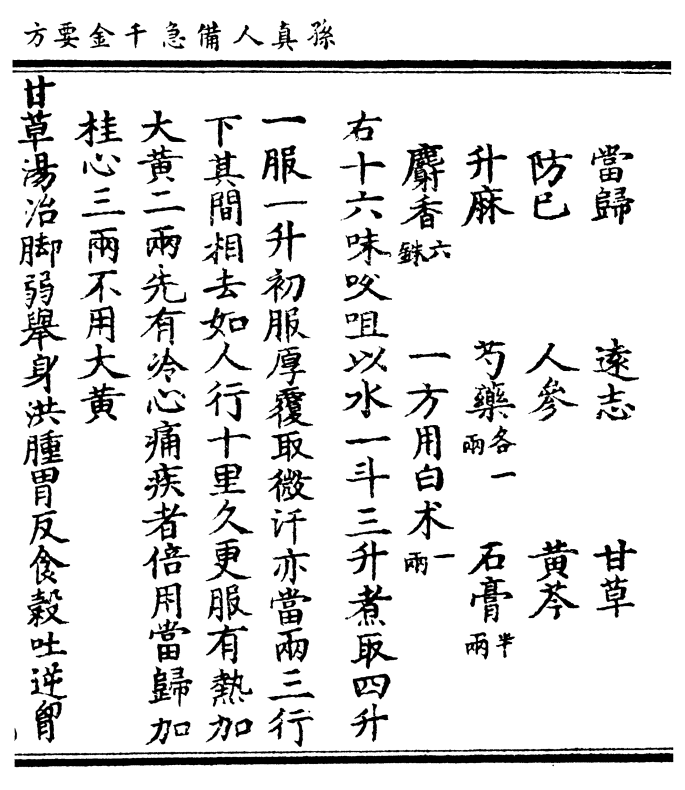 孫真人備急千金要方
當歸　遠志　甘草
防已　人參　黃芩
升麻　芍藥各一兩　石膏半兩
麝香六銖　一方用白术一兩
右十六味㕮咀以水一斗三升煮取四升
一服一升初服厚覆取微汗亦當兩三行
下其間相去如人行十里久更服有熱加
大黃二兩先有冷心痛疾者倍用當歸加
桂心三兩不用大黃
甘草湯治脚弱舉身洪腫胃反食穀吐逆胷